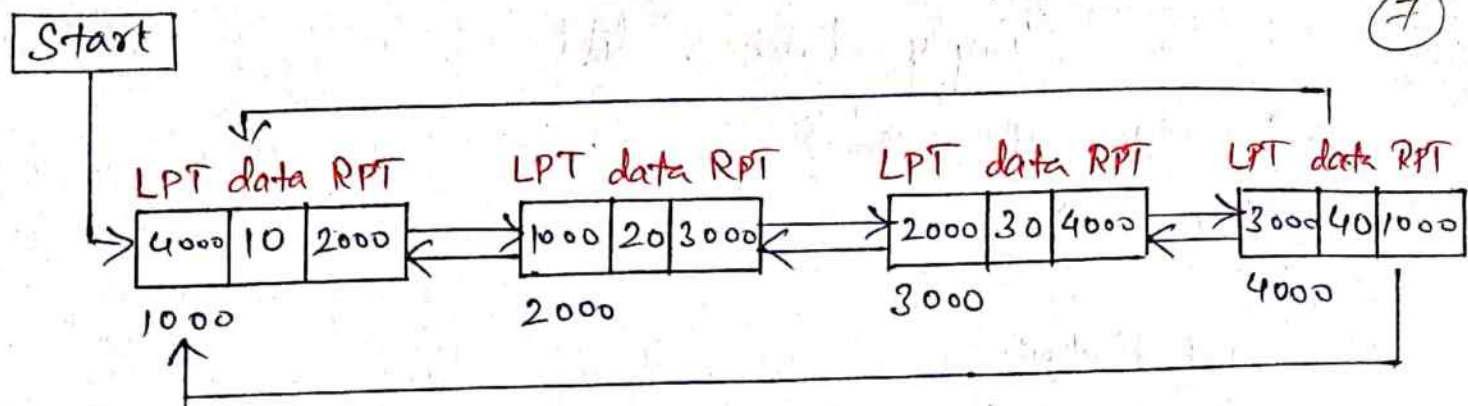 7
Start
LPT data RPT LPT data RPT LPT data RPT LPT data RPT
4000 10 2000 1000 20 3000 2000 30 4000 3000 40 1000
1000 2000 3000 4000